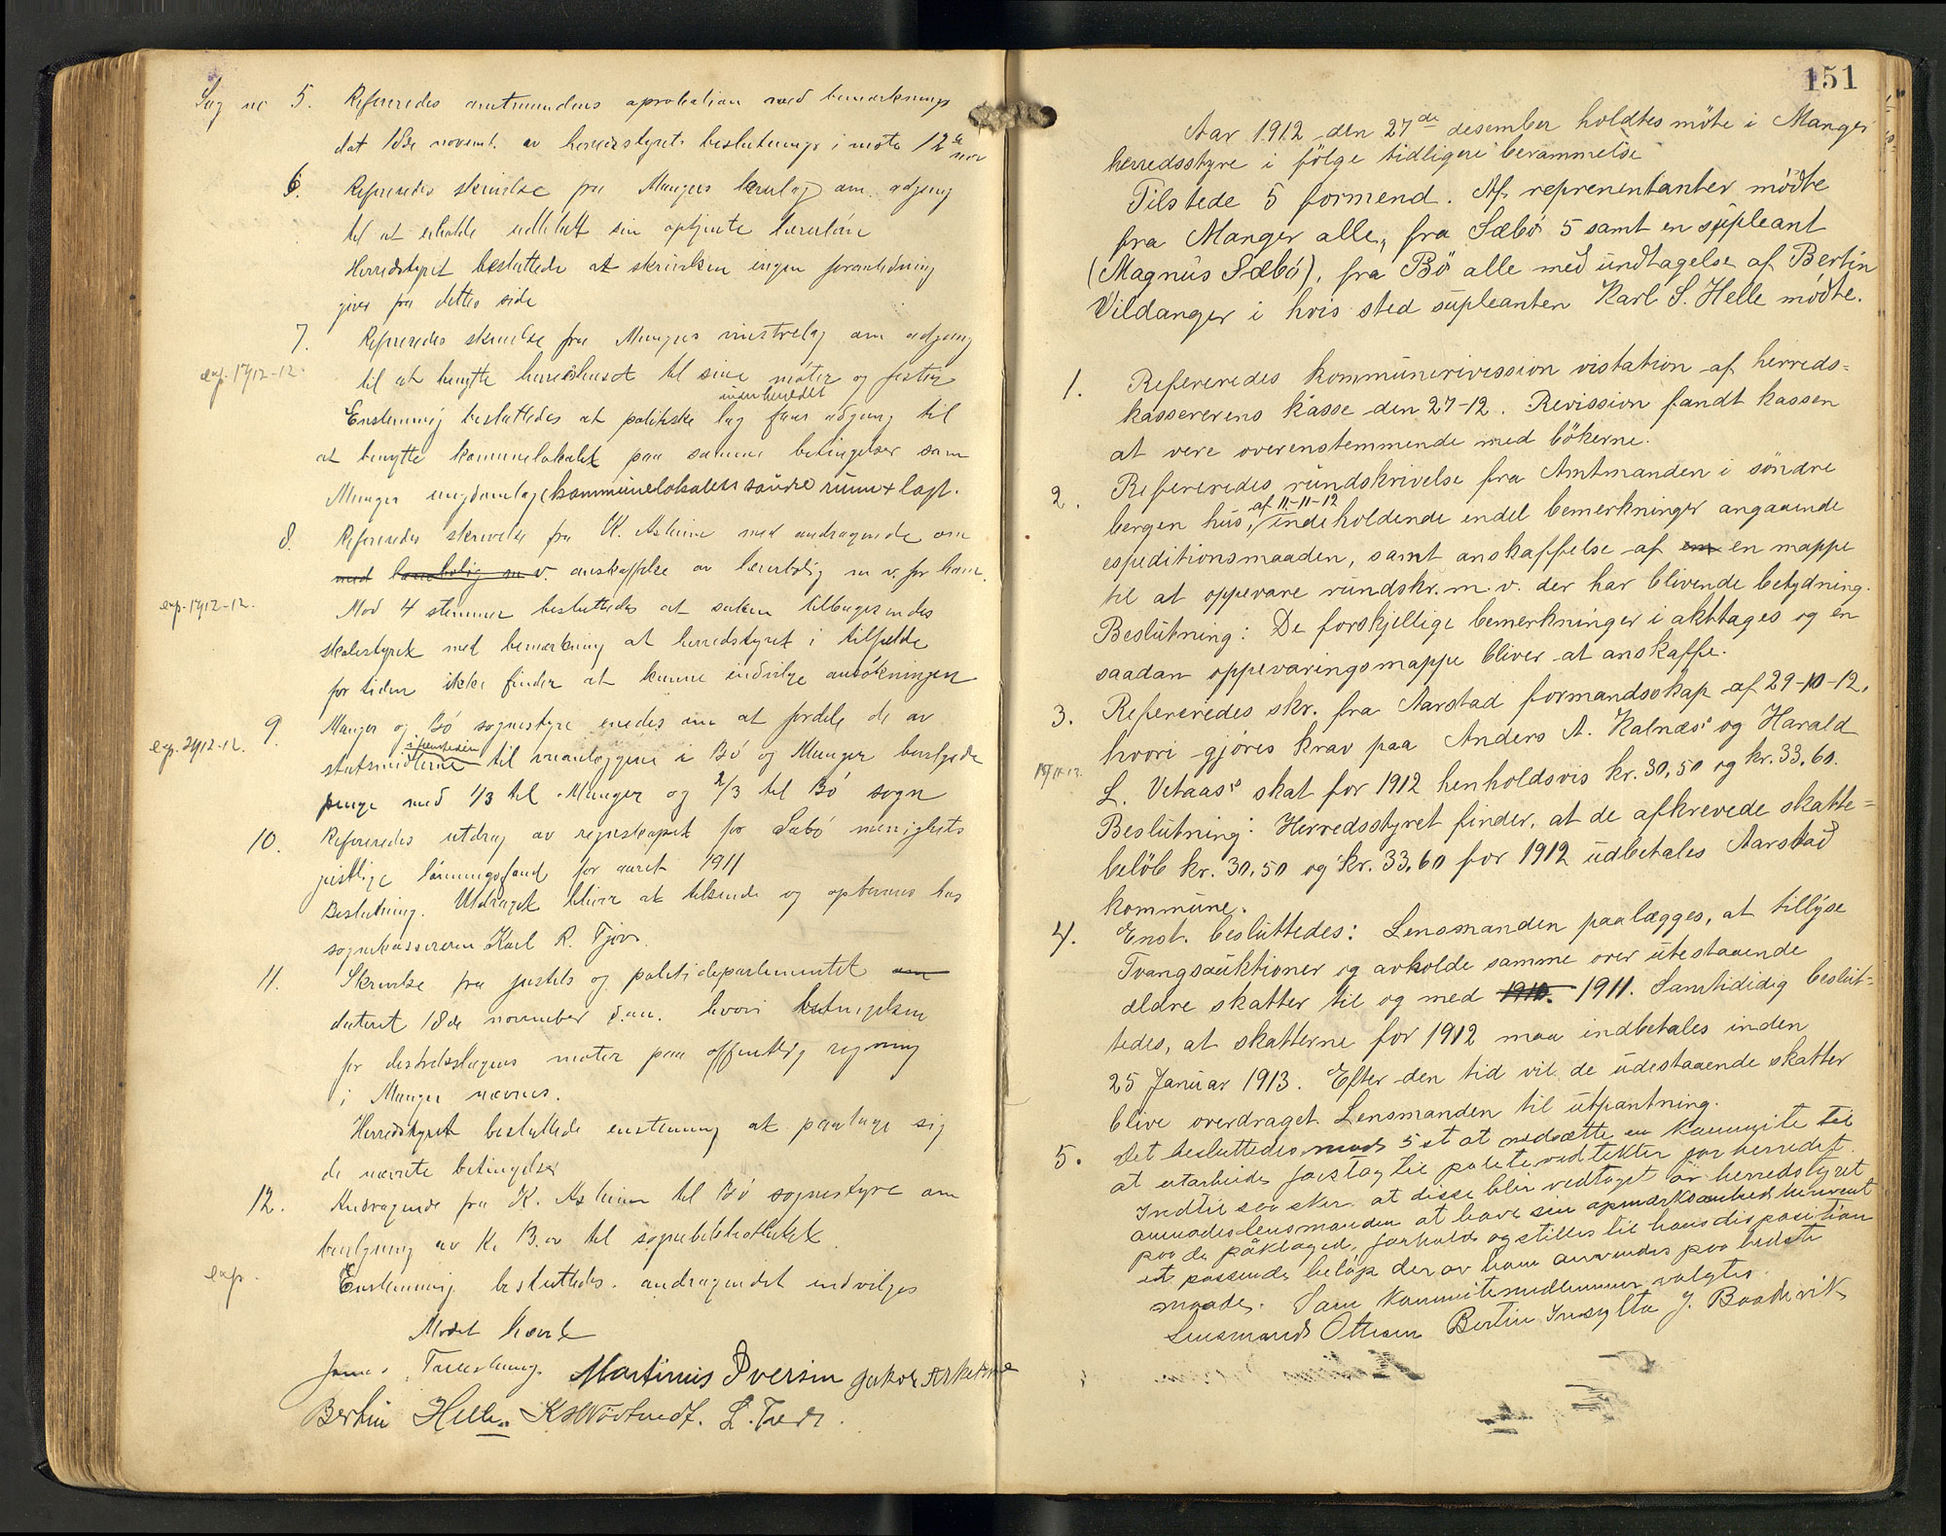 Sag nr 5. Refereredes amtmandens aprobation med bemerkning
dat 18de novemb. av herredstyrets beslutninge i møte 12te nov
6. Refereredes skrivelse fra Mangers lærerlag om adgang
til at erholde utbetalt sin optjente lærerløn
Herredstyret besluttede at skrivelsen ingen foranledning
giver fra dettes side
7. Refereredes skrivelse fra Mangers venstrelag om adgang
exp. 17/12-12.
til at benytte herredshuset til sine møter og fester
inen herredet
Enstemmig besluttedes at politiske lag faar adgang til
at benytte kommunelokalet paa samme betingelser som
Manger ungdomslag (kommunelokalets søndre rum + loft.
8. Refereredes skrivelse fra K. Askeim med andragende om
med lærerbolig m v. anskaffelse av lærerbolig m v. for ham.
exp. 17/12-12.
Mod 4 stemmer besluttedes at saken tilbagesendes
skolestyret med bemerkning at herredstyret i tilfelde
for tiden ikke finder at kunne indvilge ansøkningen
9. Manger og Bö sognestyre enedes om at fordele de av
exp. 24/12-12.
i fremtiden
statsmidlerne til veianlæggene i Bö og Manger bevilgede
penge med 1/3 til Manger og 2/3 til Bö sogn
10. Refereredes utdrag av regnskapet for Sæbö menigheds
gistlige lønningsfond for aaret 1911
Beslutning. Utdraget bliver at tilsende og opbevares hos
sognekassereren Karl R. Fjøs.
11. Skrivelse fra justits og politidepartementet om
dateret 18de november d.aa. hvori betingelsene
for distriktslægens møter paa offentlig regning
i Manger nævnes.
Herredstyret besluttede enstemmig at paatage sig
de nævnte betingelser
12. Andragende fra K. Askeim til Bö sognestyre om
bevilgning av K. B. ov til sognebibliotheket
exp.
Enstemmig besluttedes andragendet indvilges
Mødet hævet
Martinus Iversen Jakob Askeland
Bertin Helle. L.
151
Aar 1912 den 27de desember holdtes möte i Manger
herredsstyre i fölge tidligere berammelse
Tilstede 5 formend. Af reprenentanter mödte
fra Manger alle, fra Sæbö 5 samt en süpleant
(Magnus Sæbö), fra Bö alle med undtagelse af Bertin
Vildanger i hvis sted süpleanten Karl S. Helle mödte.
1. Refereredes kommunerivission vistation af herreds=
kassererens kasse den 27-12. Revission fandt kassen
at vere overenstemmende med bökerne.
2. Refereredes rundskrivelse fra Amtmanden i söndre
af 11-11-12
bergen hus, indeholdende endel bemerkninger angaaende
espeditionsmaaden, samt anskaffelse af em en mappe
til at oppevare rundskr. m. v. der har blivende betydning.
Beslutning: De forskjellige bemerkninger i akttages og en
saadan oppevaringsmappe bliver at anskaffe.
3. Refereredes skr. fra Aarstad formandsskap af 29-10-12,
hvori gjöres krav paa Anders A. Kalnæs's og Harald
L. Vetaas's skat for 1912 henholdsvis kr. 30,50 og kr. 33,60.
Beslutning: Herredsstyret finder, at de afkrevede skatte=
belöb kr. 30,50 og kr. 33,60 for 1912 udbetales Aarstad
kommune.
4. Enst. besluttedes: Lensmanden paalægges, at tillyse
Tvangsauktioner og avholde samme over utestaaende
ældre skatter til og med 1910. 1911. Samtididig beslut=
tedes, at skatterne for 1912 maa indbetales inden
25 Januar 1913. Efter den tid vil de udestaaende skatter
blive overdraget Lensmanden til utpantning.
5. Det besluttedes mod 5 st at nedsætte en kommite til
at utarbeide forslag til politivedtekter for herredet.
Indtil saa sker at disse blir vedtaget av herredstyret
anmodes lensmanden at have sin opmærksomhed henvent
paa de påklaged, forhold og stilles til hans disposition
et passende beløp der av ham anvendes paa bedste
maade. Som kommitemedlemmer valgtes
Lensmand Ottesen Bertin Insylta J. Baadsvik